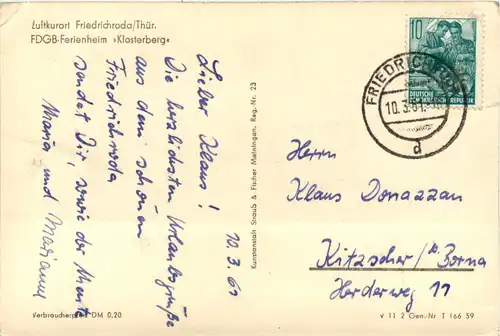 Luftkurort Friedrichroda/Thür.
FDGB-Ferienheim »Klosterberg«
10.3.61
Lieber Klaus!
Die herzlichsten Urlaubsgrüße
aus dem schönen
Friedrichroda
sendet Dir, sowie der Mutti
Maria und Marianne
Verbraucherpreis DM 0,20
Kunstanstalt Straub & Fischer Meiningen, Reg.-Nr. 23
10
DEUTSCHE
DEMOKRATISCHE REPUBLIK
FRIEDRICHRODA
10.3.61
d
Herrn
Klaus Donazzan
Kitzscher/b. Borna
Herderweg 11
V 11 2 Gen.-Nr T 166 59